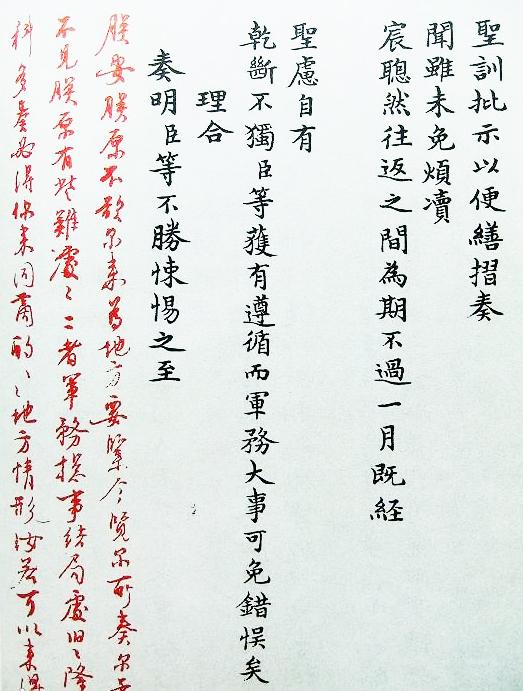 聖訓批示以便繕摺奏
聞雖未免煩瀆
宸聰然往返之間為期不過一月既経
聖慮自有
乾斷不獨臣等獲有遵循而軍務大事可免錯悞矣
理合
奏明臣等不勝悚惕之至
朕安朕原不欲尔來為地方要緊今覽尔所奏尔
不見朕原有些難處〻二者軍務總事結局處旧〻隆
科多奏必得你來同商酌〻〻地方情形汝若可以來